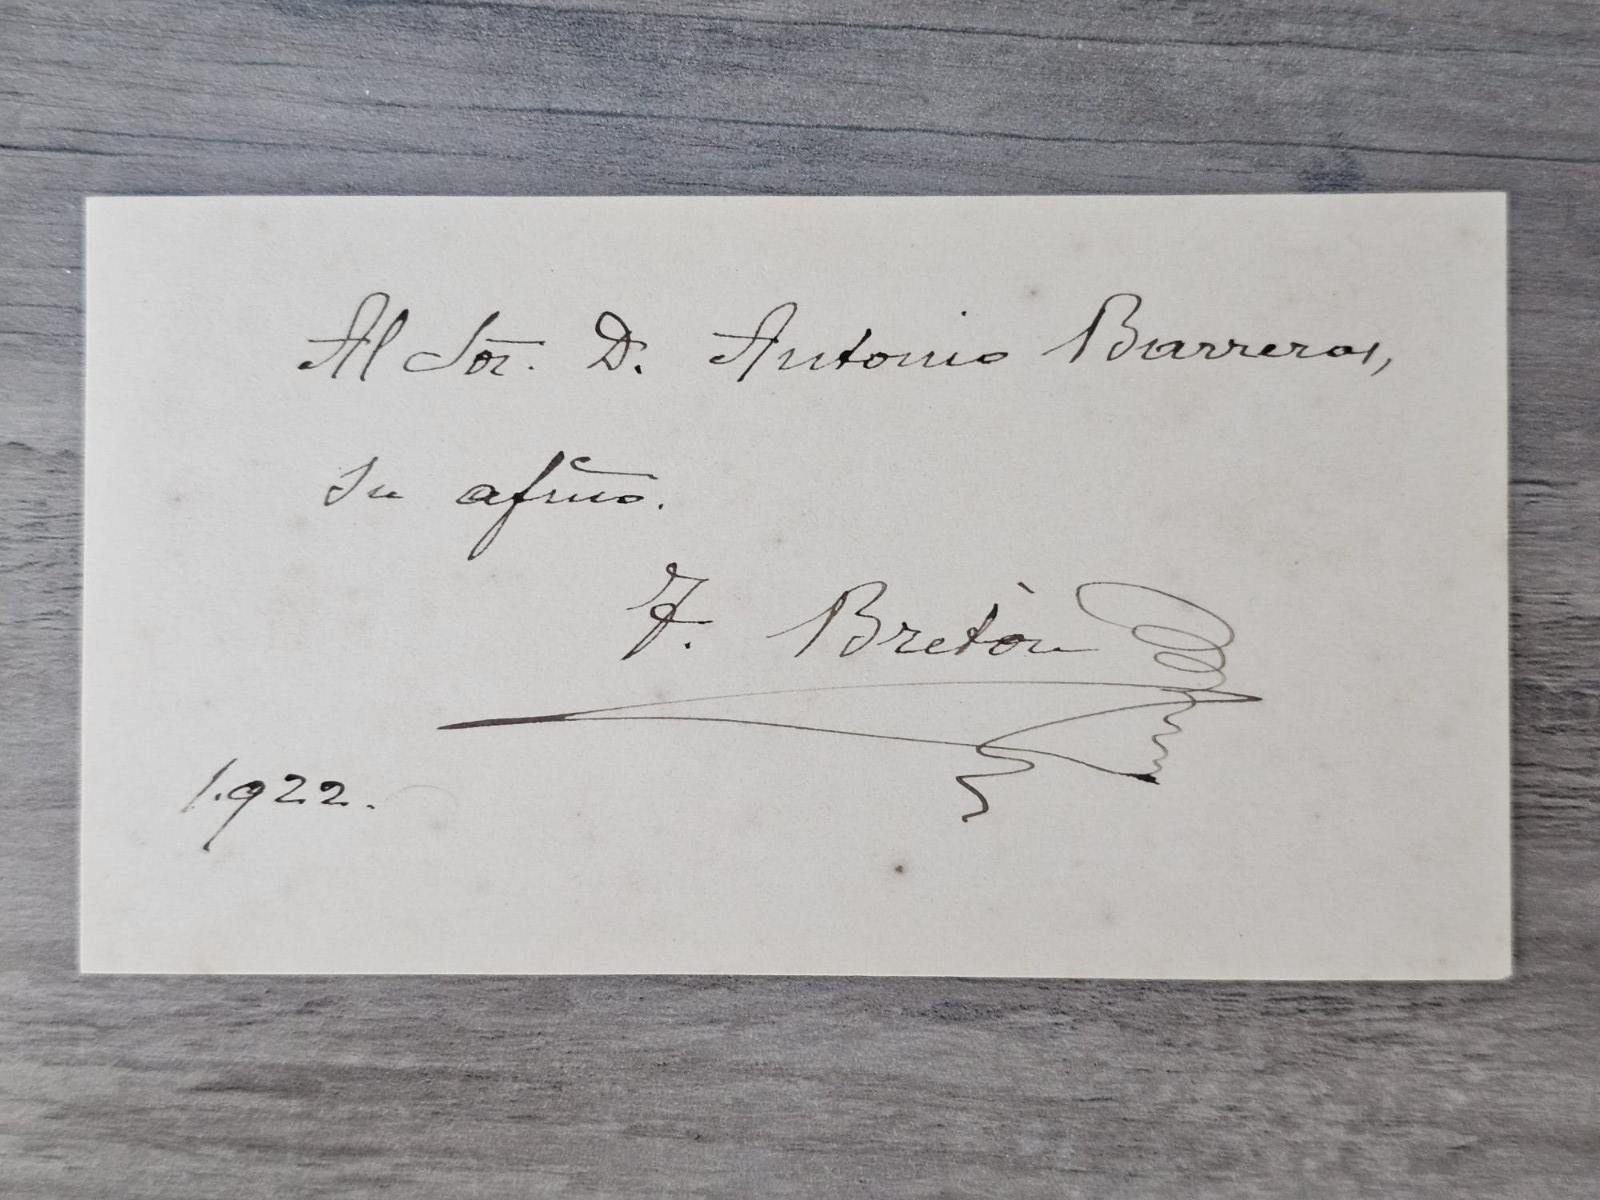 Al Sor. D. Antonio Barreras,
su afmo.
T. Bretòn
1.922.